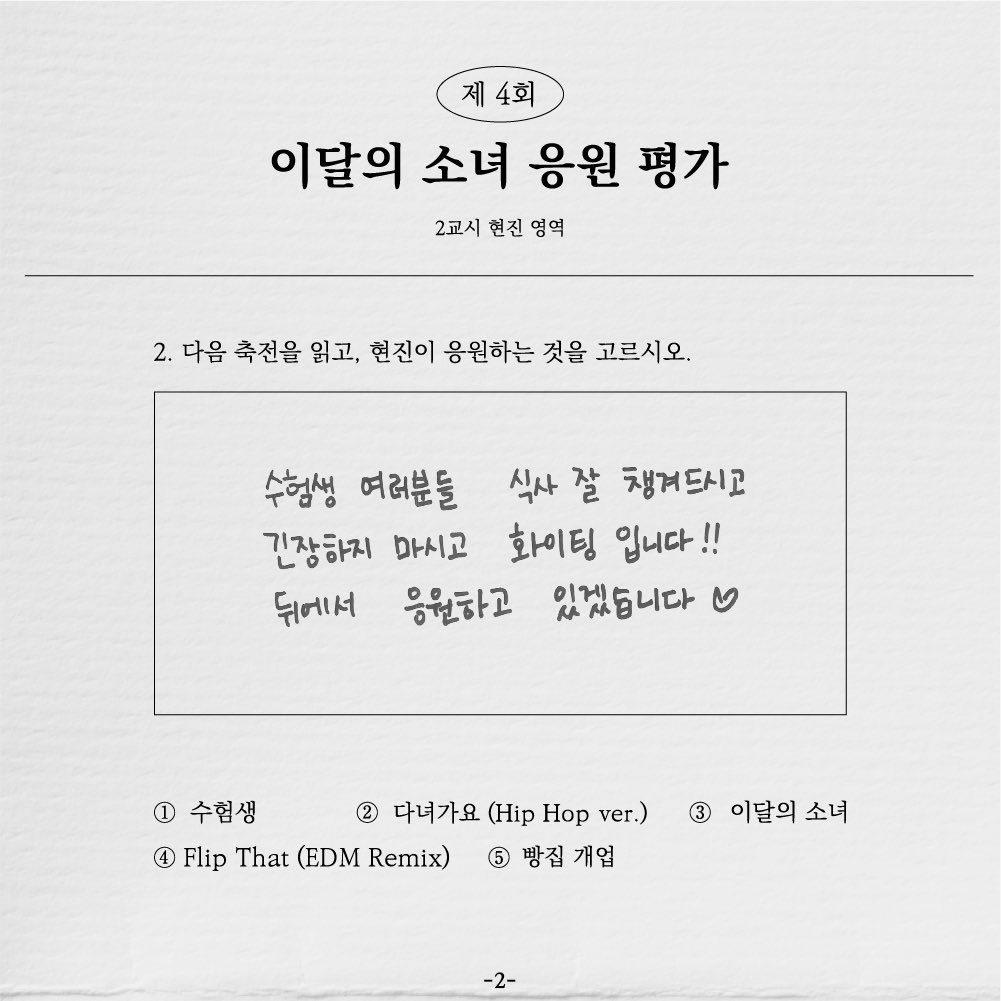 제 4회
이달의 소녀 응원 평가
2교시 현진 영역
2. 다음 축전을 읽고, 현진이 응원하는 것을 고르시오.
수험생 여러분들 식사 잘 챙겨드시고
긴장하지 마시고 화이팅 입니다!!
뒤에서 응원하고 있겠습니다 ♡
① 수험생 ② 다녀가요 (Hip Hop ver.) ③ 이달의 소녀
④ Flip That (EDM Remix) ⑤ 빵집 개업
-2-